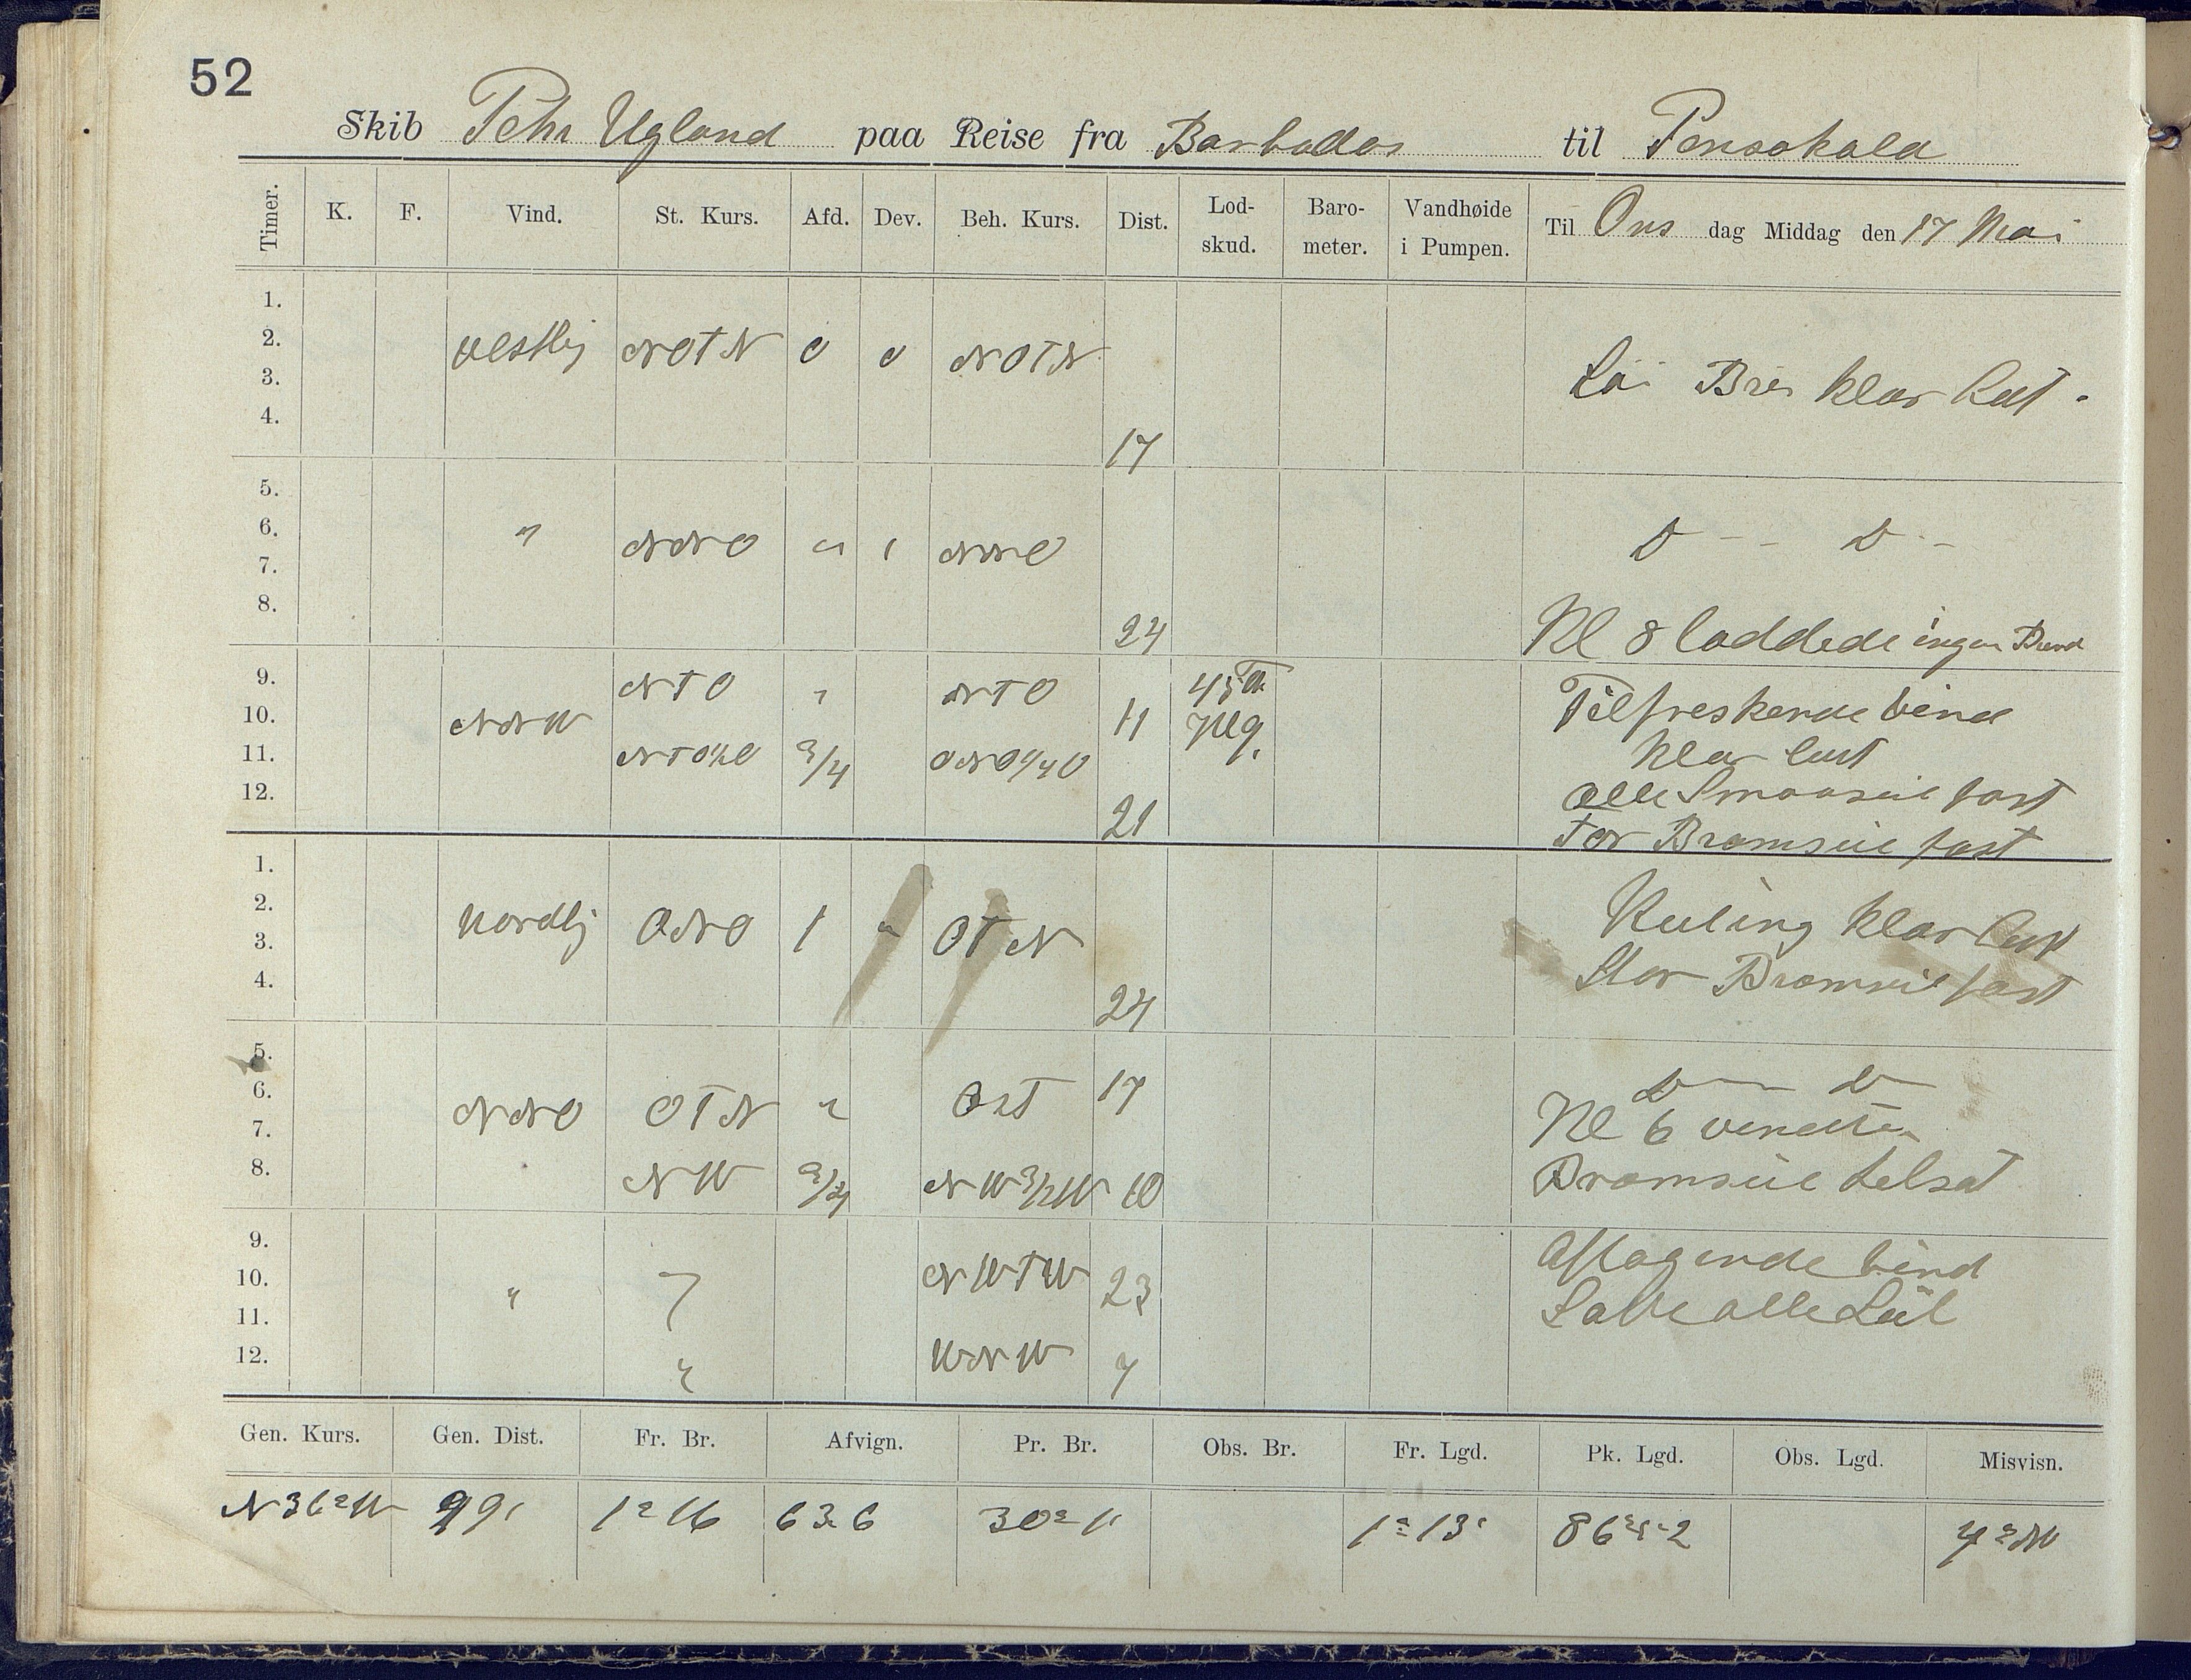 52
Skib Pehr Ugland paa Reise fra Barbados til Pensakola
Timer. K. F. Vind. St. Kurs. Afd. Dev. Beh. Kurs. Dist. Lod-skud. Baro-meter. Vandhøide i Pumpen. Til Ons dag Middag den 17 Mai
1.
2. vestlig NOTN 0 0 NOTN
3. Bris klar luft.
4. 17
5.
6. " NNO " NNO D -- D --
7.
8. 24 Kl 8 loddede ingen Bund
9. NTO " NTO 45
10. NNW 11 Tilfreskende vind
11. 3/4 Klar luft
12. 21 alle Smaaseil fast
For Bramseil fast
1.
2. Nordlig ONO 1 " OTN Kuling klar luft
3. Stor Bramseil fast
4. 24
5.
6. NNO OTN " Ost 17 D -- D
7. Kl 6 vendte
8. NW 3/4 10 Bramseil tilsat
9. Aftagende vind
10. " " NWTW 23 alle Seil
11.
12. " WNW 7
Gen. Kurs. Gen. Dist. Fr. Br. Afvign. Pr. Br. Obs. Br. Fr. Lgd. Pk. Lgd. Obs. Lgd. Misvisn.
N36°W 99 1°16 63.6 30°11 1°13' 4°